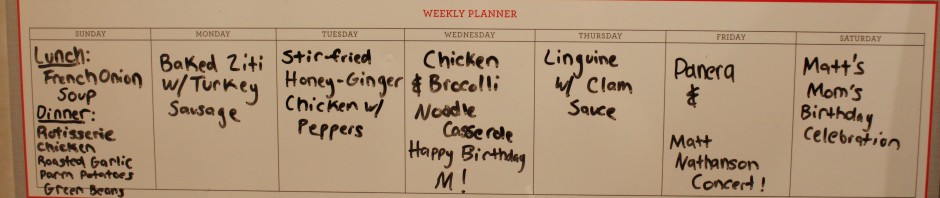 WEEKLY PLANNER
SUNDAY
Lunch:
French Onion
Soup
Dinner:
Rotisserie
Chicken
Roasted Garlic
Parm Potatoes
Green Beans
MONDAY
Baked Ziti
w/ Turkey
Sausage
TUESDAY
Stir-fried
Honey-Ginger
Chicken w/
Peppers
WEDNESDAY
Chicken
& Brocolli
Noodle
Casserole
Happy Birthday
M!
THURSDAY
Linguine
w/ Clam
Sauce
FRIDAY
Panera
&
Matt
Nathanson
Concert!
SATURDAY
Matt's
Mom's
Birthday
Celebration